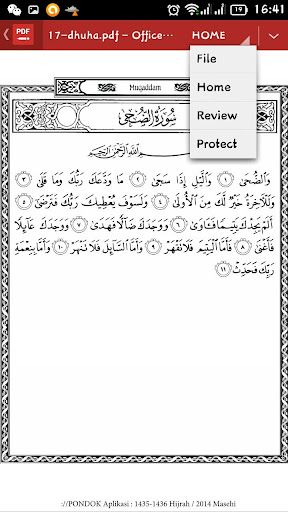 16:41
PDF
17-dhuha.pdf - Office...
HOME
File
Home
Review
Protect
Muqaddam
سُورَةُ الضُّحَى
بِسْمِ اللَّهِ الرَّحْمَٰنِ الرَّحِيمِ
وَالضُّحَىٰ ١ وَاللَّيْلِ إِذَا سَجَىٰ ٢ مَا وَدَّعَكَ رَبُّكَ وَمَا قَلَىٰ ٣
وَلَلْآخِرَةُ خَيْرٌ لَّكَ مِنَ الْأُولَىٰ ٤ وَلَسَوْفَ يُعْطِيكَ رَبُّكَ فَتَرْضَىٰ ٥
أَلَمْ يَجِدْكَ يَتِيمًا فَآوَىٰ ٦ وَوَجَدَكَ ضَالًّا فَهَدَىٰ ٧ وَوَجَدَكَ عَائِلًا
فَأَغْنَىٰ ٨ فَأَمَّا الْيَتِيمَ فَلَا تَقْهَرْ ٩ وَأَمَّا السَّائِلَ فَلَا تَنْهَرْ ١٠ وَأَمَّا بِنِعْمَةِ
رَبِّكَ فَحَدِّثْ ١١
://PONDOK Aplikasi : 1435-1436 Hijrah / 2014 Masehi